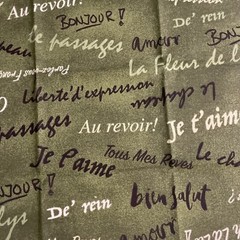 Au revoir!
BONJOUR!
De' rein
le passages
amour
La Fleur de l
Parlez-vous Franç
Liberté d'expression
le chateau
passages
Au revoir!
Je t'aime
Je t'aime
Tous Mes Reves
Le ch
BONJOUR!
De' rein
bien salut
lys